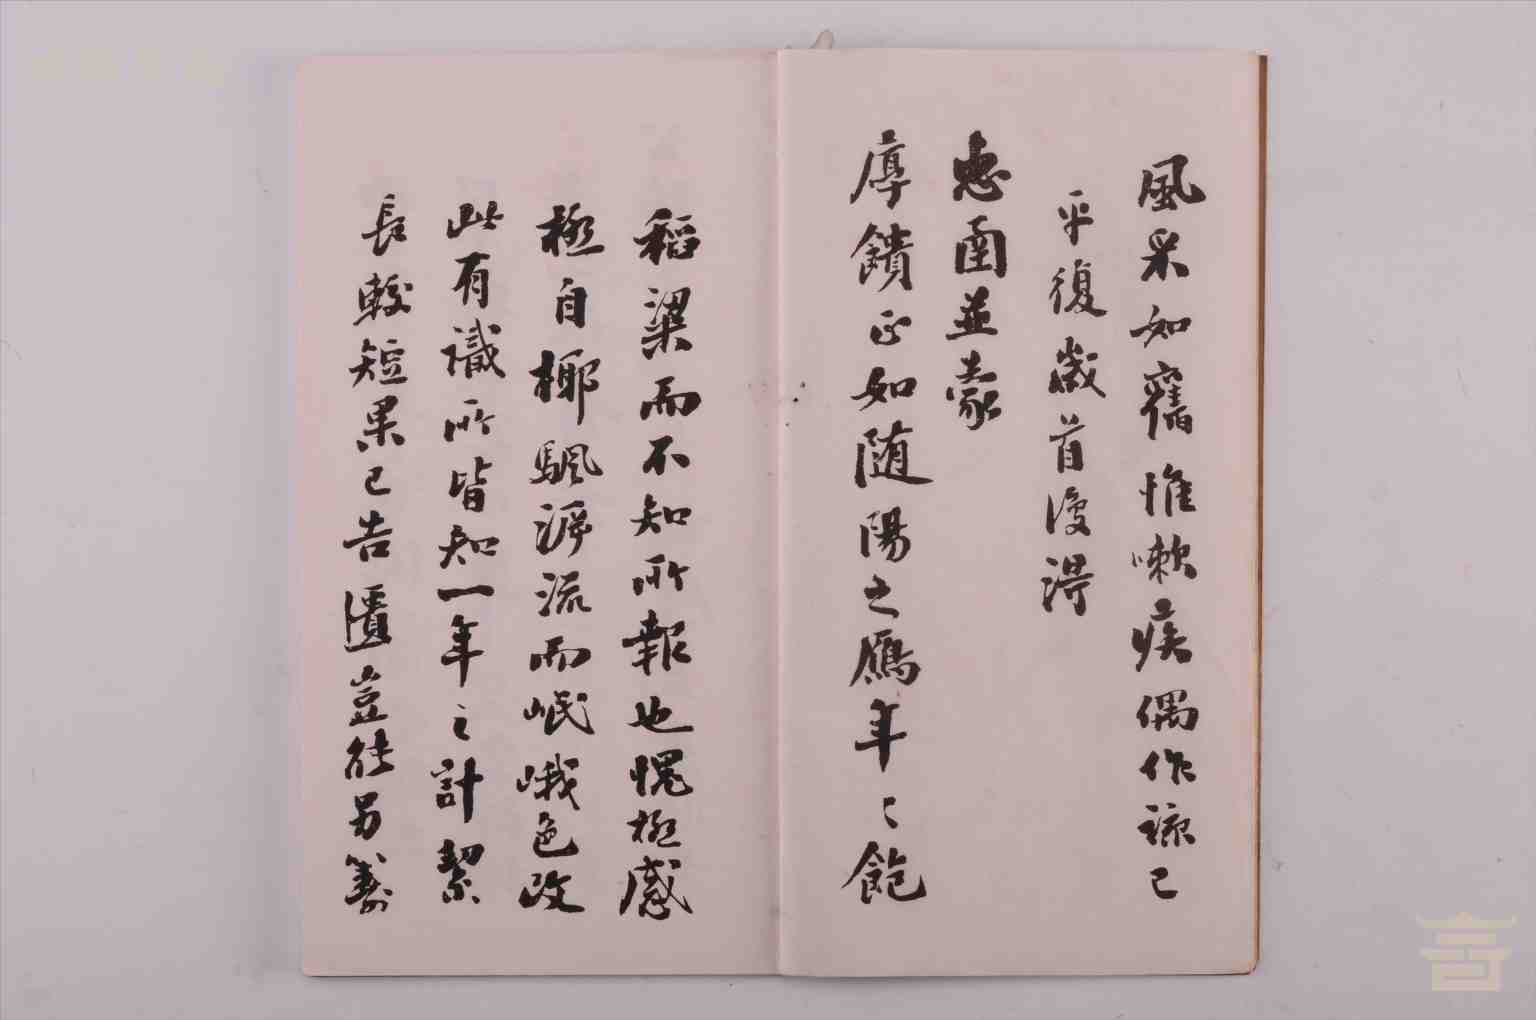 風采如舊惟嗽疾偶作諒已
平復歲首復得
惠函並蒙
厚饋正如隨陽之鴈年〻飽
稻粱而不知所報也愧極感
極自椰颿游流而岷峨色改
此有識所皆知一年之計絜
長較短果已告匱豈能另籌